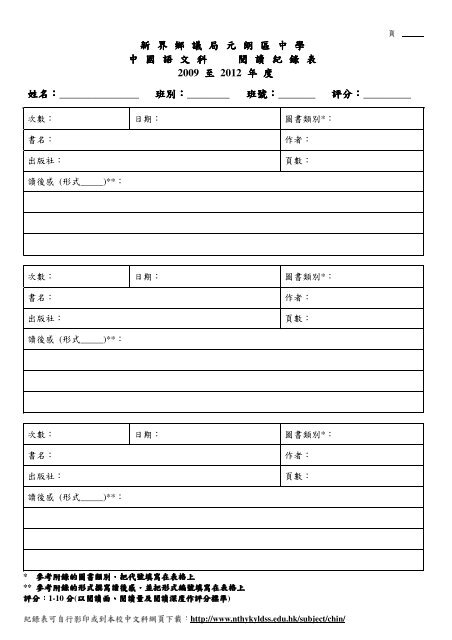 頁 ____
新 界 鄉 議 局 元 朗 區 中 學
中 國 語 文 科 閱 讀 紀 錄 表
2009 至 2012 年 度
姓名：____________ 班別：______ 班號：______ 評分：________
次數： 日期： 圖書類別*：
書名： 作者：
出版社： 頁數：
讀後感 (形式_____)**：
次數： 日期： 圖書類別*：
書名： 作者：
出版社： 頁數：
讀後感 (形式_____)**：
次數： 日期： 圖書類別*：
書名： 作者：
出版社： 頁數：
讀後感 (形式_____)**：
* 參考附錄的圖書類別，把代號填寫在表格上
** 參考附錄的形式撰寫讀後感，並把形式編號填寫在表格上
評分：1-10 分(以閱讀面、閱讀量及閱讀深度作評分標準)
紀錄表可自行影印或到本校中文科網頁下載：http://www.nthykyldss.edu.hk/subject/chin/